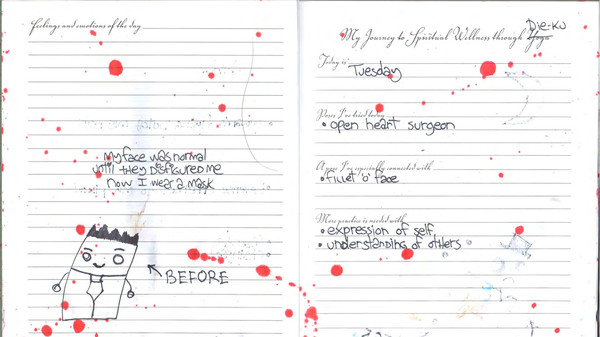 Feelings and emotions of the day
my face was normal
until they disfigured me
now I wear a mask
BEFORE
Die-Ku
My Journey to Spiritual Wellness through Yoga
Today is
Tuesday
Poses I've tried today
• open heart surgeon
A pose I've especially connected with
• fillet 'o' face
More practice is needed with
• expression of self
• understanding of others